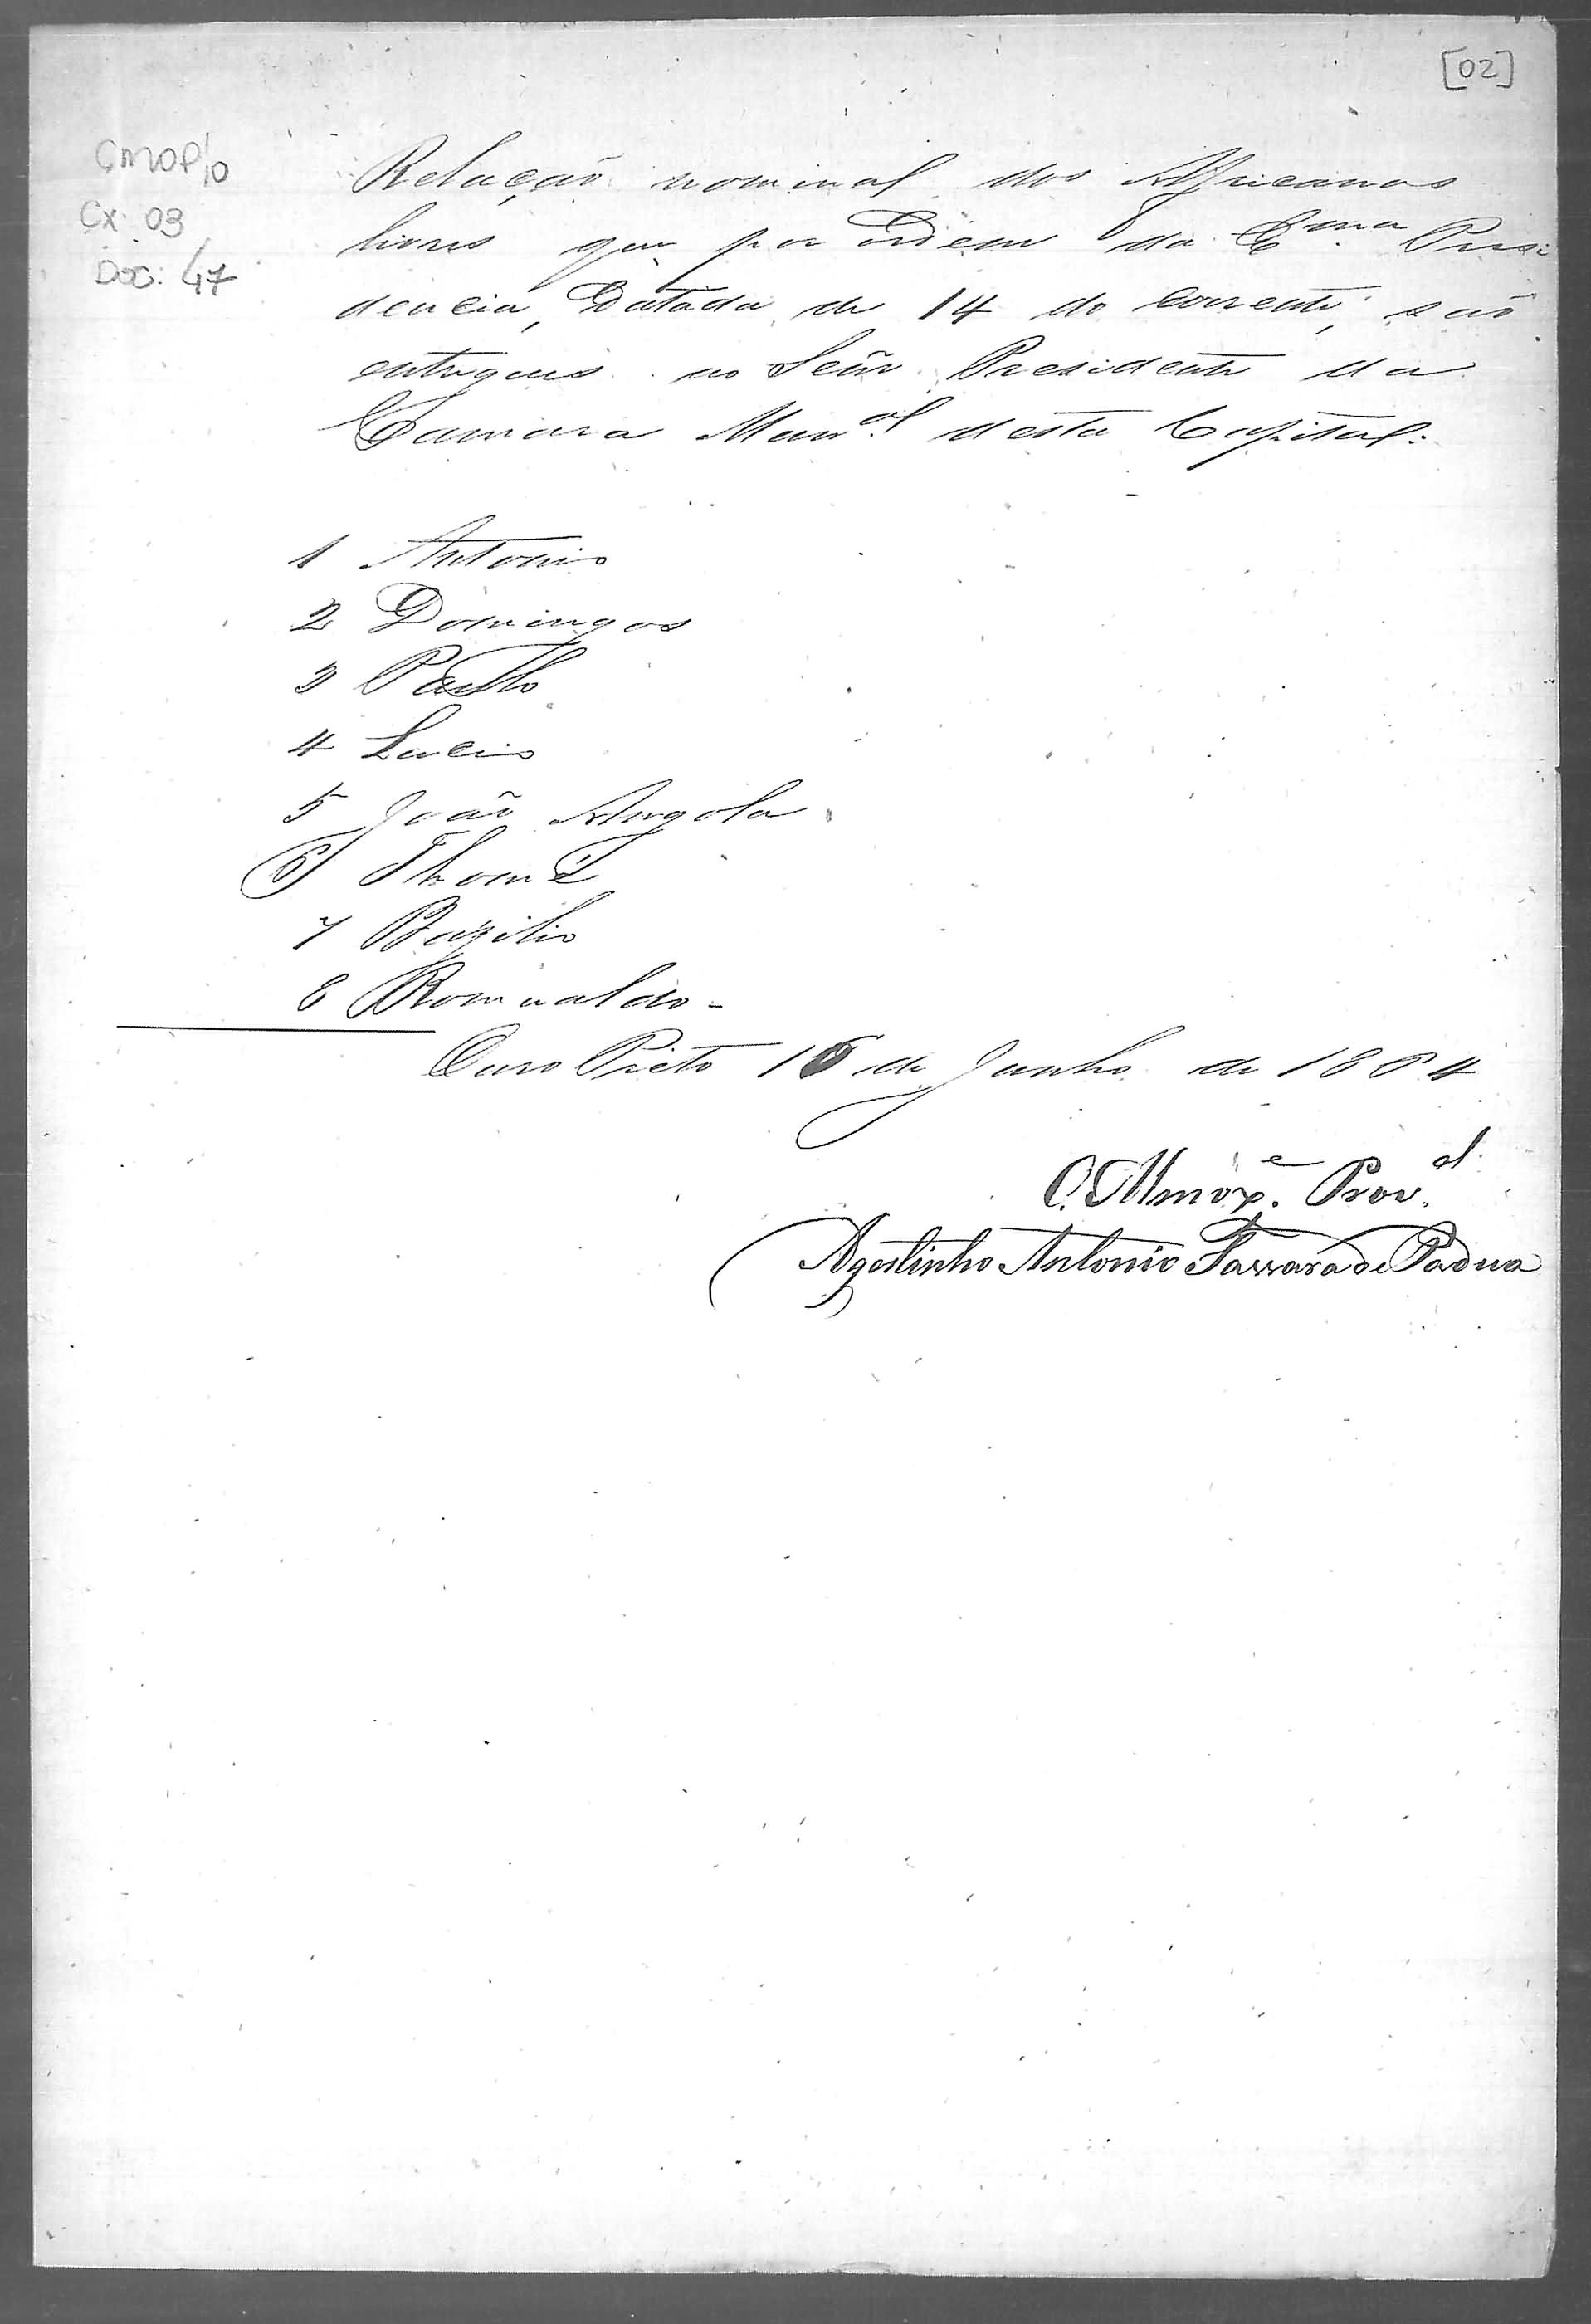 [02]
CMOP/10
Cx: 03
Doc: 47
Relação nominal dos Africanos
livres que por Ordem da Ex.ma Presi
dencia, Datada de 14 do corrente, são
entregues ao Señr Presidente da
Camara Mun.al desta Capital.
1 Antonio
2 Domingos
3 Paulo
4 Lucio
5 João Angola
6 Thomé
7 Bazilio
8 Romualdo -
Ouro Preto 16 de Junho de 1864
O Almox.e Prov.al
Agostinho Antonio Tassara de Padua